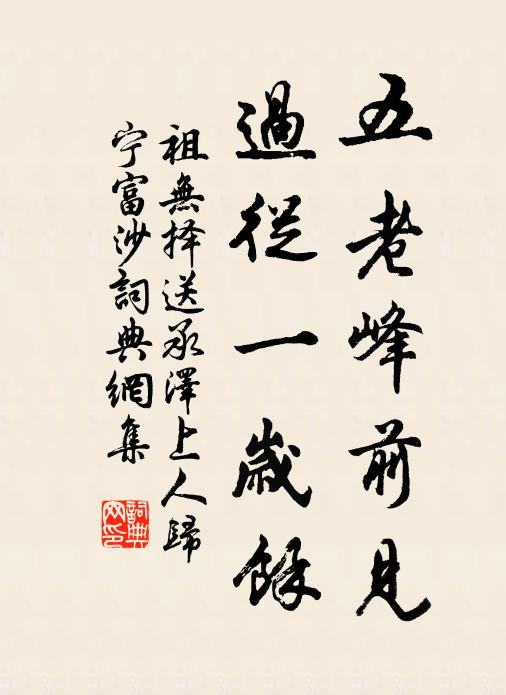 五老峰前見
過從一歲餘
祖無择送承澤上人歸
宁富沙詞典網集
詞典网印